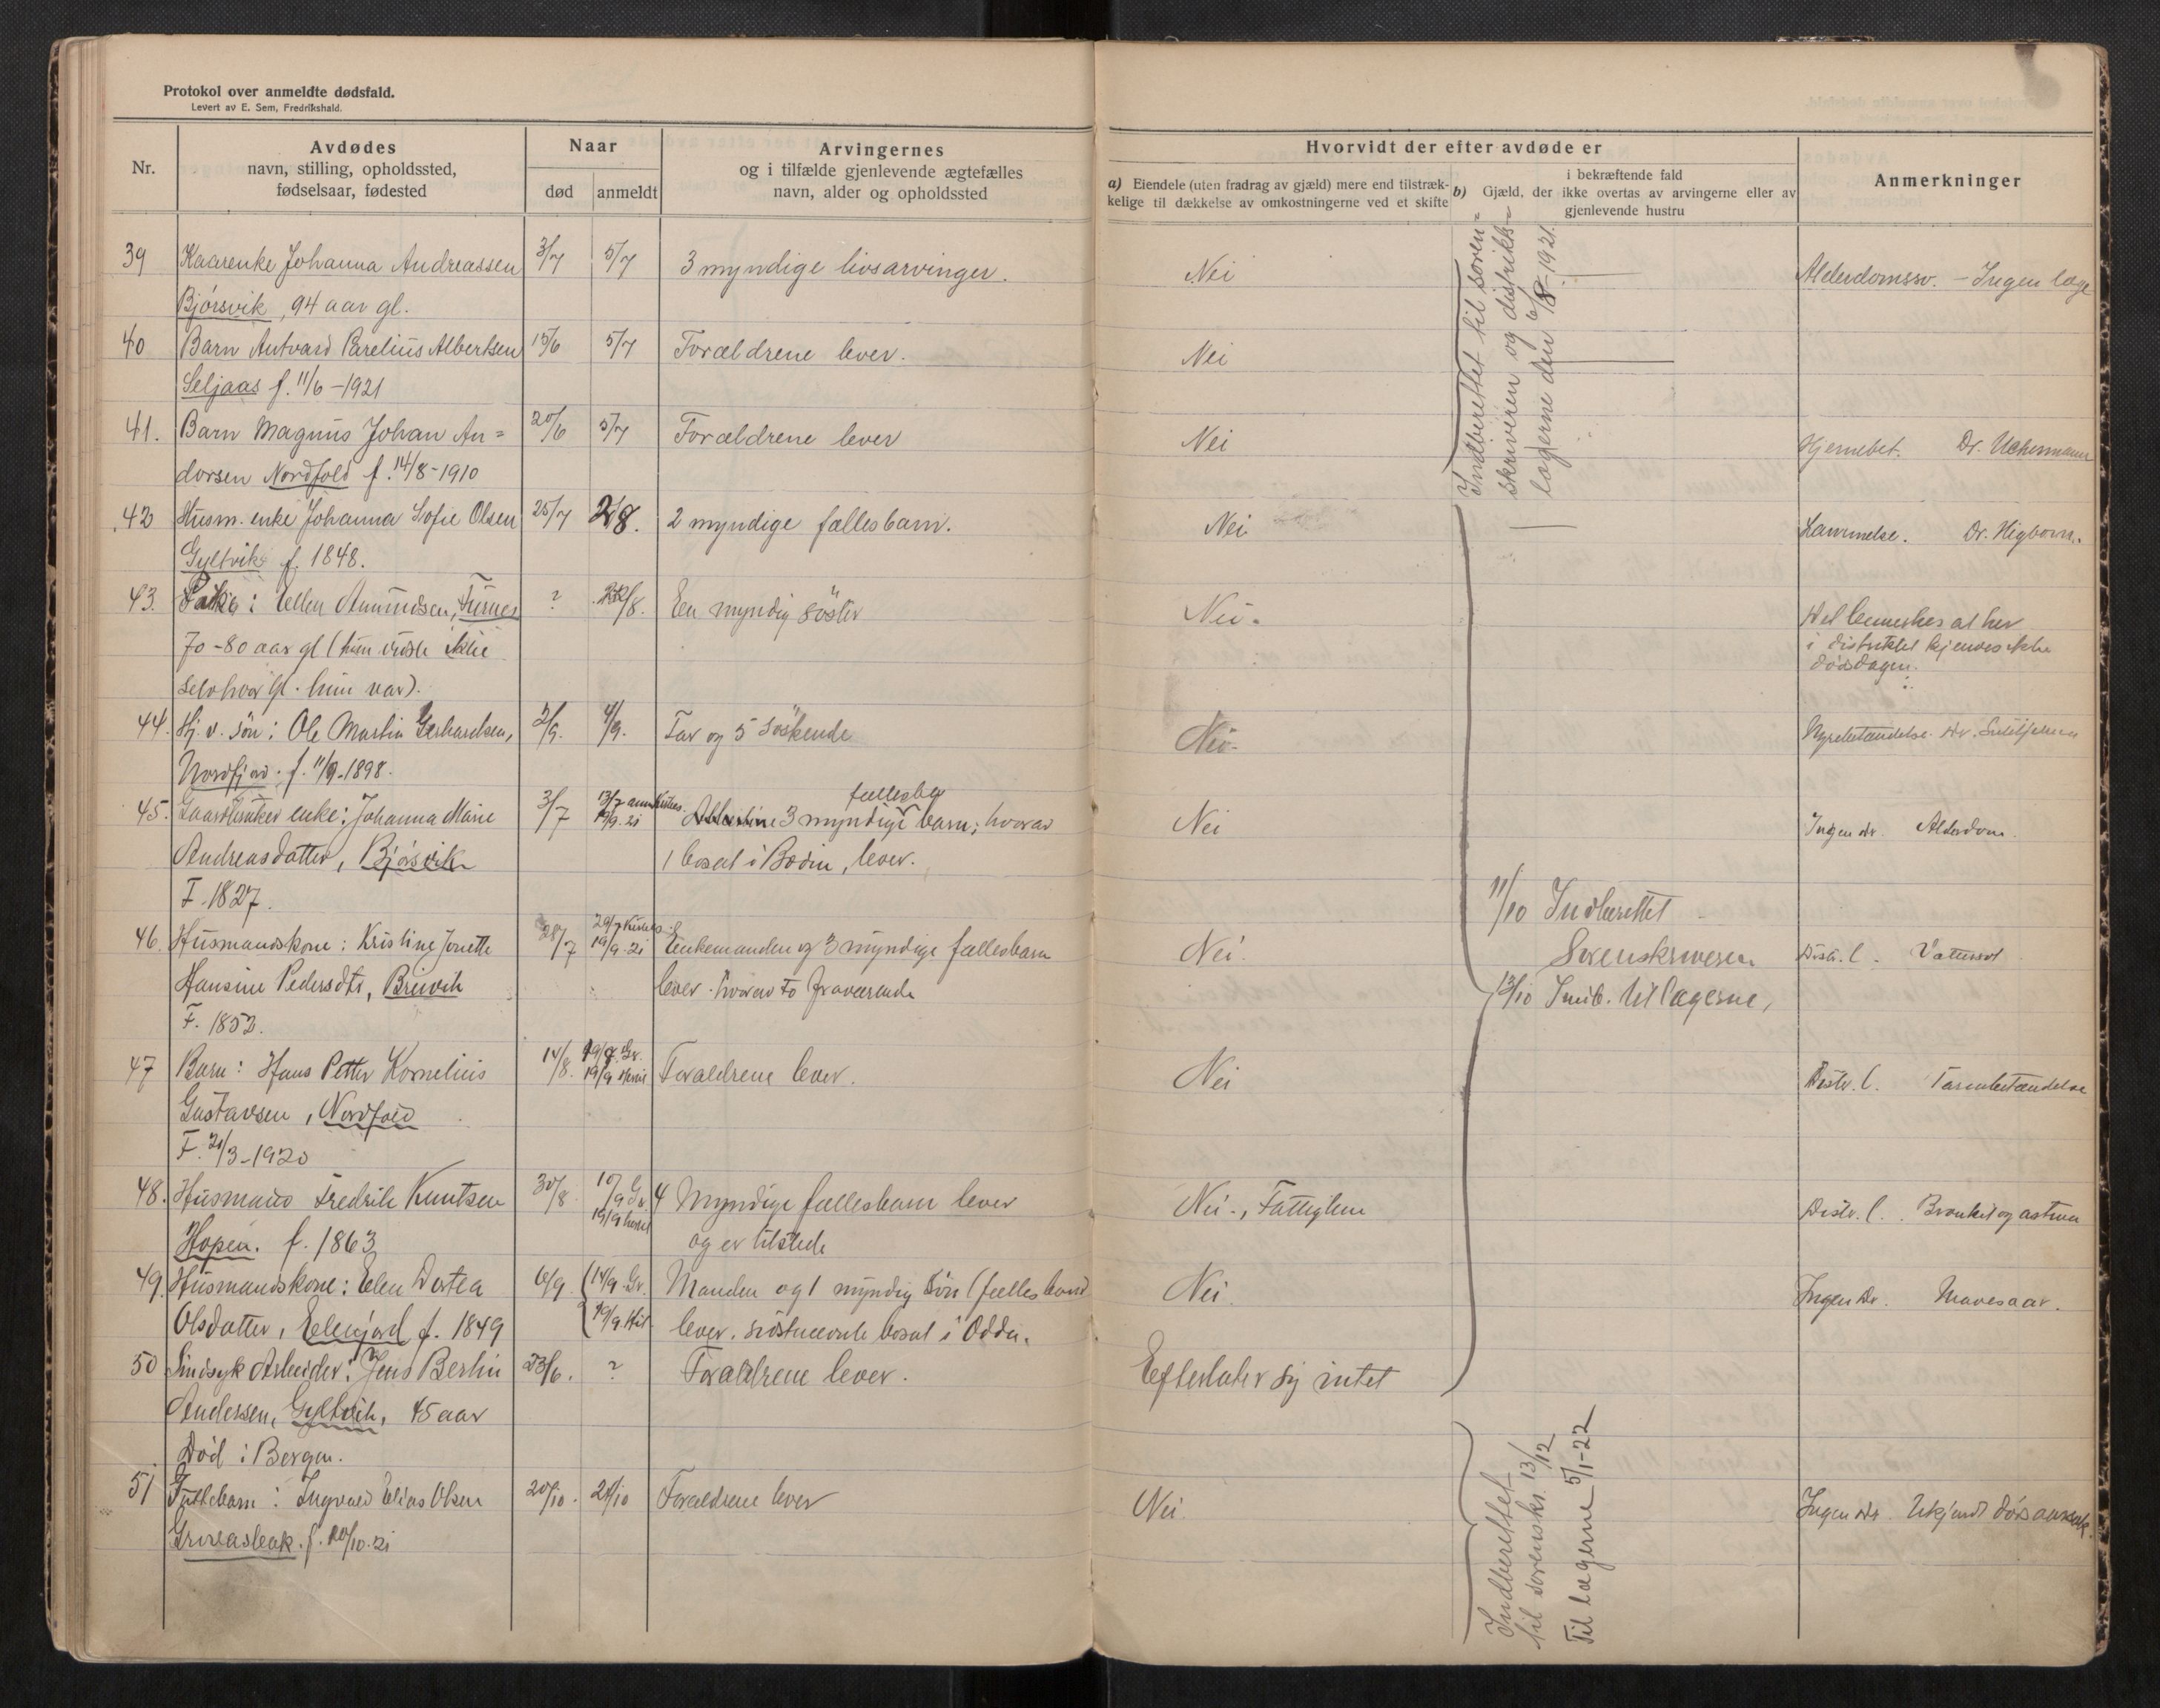 Protokol over anmeldte dødsfald.
Levert av E. Sem, Fredrikshald.
Nr.
Avdødes
navn, stilling, opholdssted,
fødselsaar, fødested
Naar
død
anmeldt
Arvingernes
og i tilfælde gjenlevende ægtefælles
navn, alder og opholdssted
Hvorvidt der efter avdøde er
a) Eiendele (uten fradrag av gjæld) mere end tilstræk-
kelige til dækkelse av omkostningerne ved et skifte
i bekræftende fald
b) Gjæld, der ikke overtas av arvingerne eller av
gjenlevende hustru
Anmerkninger
39 Kaarenke Johanna Andreassen 3/7 5/7 3 myndige livsarvinger. Nei Alderdomssv. - Ingen læge
Bjørsvik, 94 aar gl.
40 Barn Antvard Parelius Albertsen 15/6 5/7 Forældrene lever. Nei
Seljaas f. 11/6-1921
41. Barn Magnus Johan An= 20/6 5/7 Forældrene lever Nei Hjernebet. Dr. Uchermann
dorsen Nordfold f. 14/8-1910
Indberettet til soren=
skriveren og distrikts=
lægerne den 6/8-1921.
42 Husm. enke Johanna Sofie Olsen 25/7 2/8. 2 myndige fællesbarn. Nei Lammelse. Dr.
Gyltvik f. 1848.
43. Ellen Amundsen, Furnes ? /8. En myndig søster Nei. Det bemerkes at her
70-80 aar gl (hun visste ikke i distriktet kjendes ikke
selv hvor gl. hun var). dødsdagen.
44. Hj. v. søn: Ole Martin Gerhardsen, 2/9. 4/9. Far og 5 søskende Nei. Nyrebetændelse. Dr.
Nordfjord. f. 11/9-1898.
45. Gaardbruker enke: Johanna Marie 3/7 13/7 19/9.21 3 myndige fællesbarn; hvorav Nei Ingen dr. Alderdom.
Andreasdatter, Bjørsvik 1 bosat i Bodin, lever.
F. 1827.
11/10 Indberettet
Sorenskriveren
13/10 Innb. til lægerne,
46. Husmandskone: Kristine Jonette 28/7 29/7 19/9.21 Enkemanden og 3 myndige fællesbarn Nei. Distr. l. Vattersot
Hansine Pedersdtr, Breivik lever. hvorav to fraværende
F. 1852.
47 Barn: Hans Petter Kornelius 14/8. 19/8 Gr. 19/9 Forældrene lever. Nei Distr. l. Tarmbetændelse
Gustavsen, Nordfold
F. 21/3-1920
48. Husmand Fredrik Knutsen 30/8 10/9 19/9 4 Myndige fællesbarn lever Nei., Fattiglem Distr. l. Bronkit og astma
Hopen. f. 1863 og er tilstede
49. Husmandskone: Elen Dortea 6/9. 14/9 Gr. Manden og 1 myndig søn (fællesbarn) Nei. Ingen dr. Mavesaar.
Olsdatter, f. 1849 19/9 lever. sidstnævnte bosat i Odda.
50 Sindsyk Arbeider: Jens Bertin 23/6. ? Forældrene lever. Efterlater sig intet
Andersen, Gyltvik, 45 aar
Død i Bergen.
51 Ingvald Elias Olsen 20/10. 21/10 Forældrene lever Nei. Ingen dr. Ukjendt dødsaarsak.
f. 20/10.21
Indberettet
til sorenskr. 13/12
Til lægerne 5/1-22